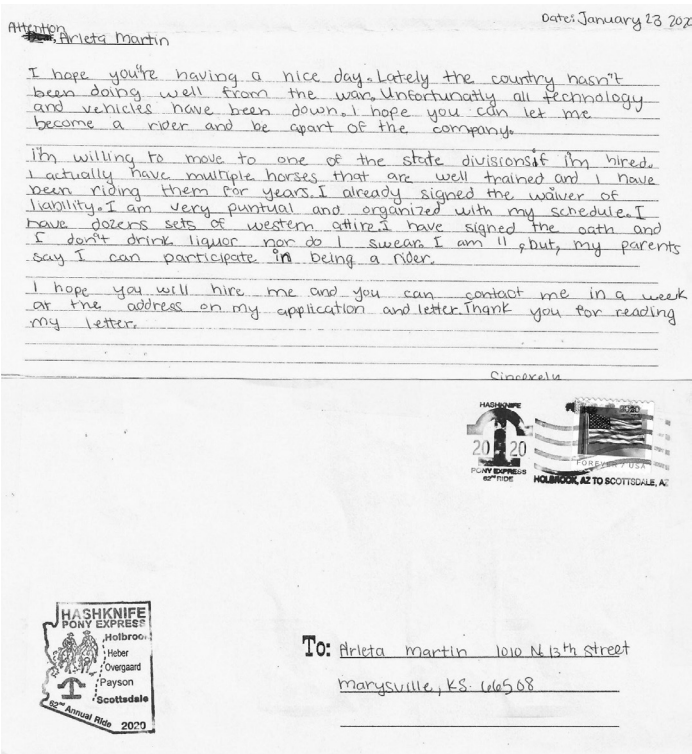 Date: January 23 202
Attention
, Arleta Martin
I hope you're having a nice day. Lately the country hasn't
been doing well from the war. Unfortunatly all technology
and vehicles have been down. I hope you can let me
become a rider and be apart of the company.
i'm willing to move to one of the state divisions if i'm hired.
I actually have multiple horses that are well trained and I have
been riding them for years. I already signed the waiver of
liability. I am very puntual and organized with my schedule. I
have dozers sets of western attire. I have signed the oath and
I don't drink liquor nor do I swear. I am 11, but, my parents
say I can participate in being a rider.
I hope you will hire me and you can contact me in a week
at the address on my application and letter. Thank you for reading
my letter.
Sincerely
HASHKNIFE
2020
PONY EXPRESS
62nd RIDE
2020
FOREVER / USA
HOLBROOK, AZ TO SCOTTSDALE, AZ
HASHKNIFE
PONY EXPRESS
Holbroo
Heber
Overgaard
Payson
Scottsdale
62nd Annual Ride 2020
To: Arleta martin 1010 N 13th street
marysville, KS. 66508